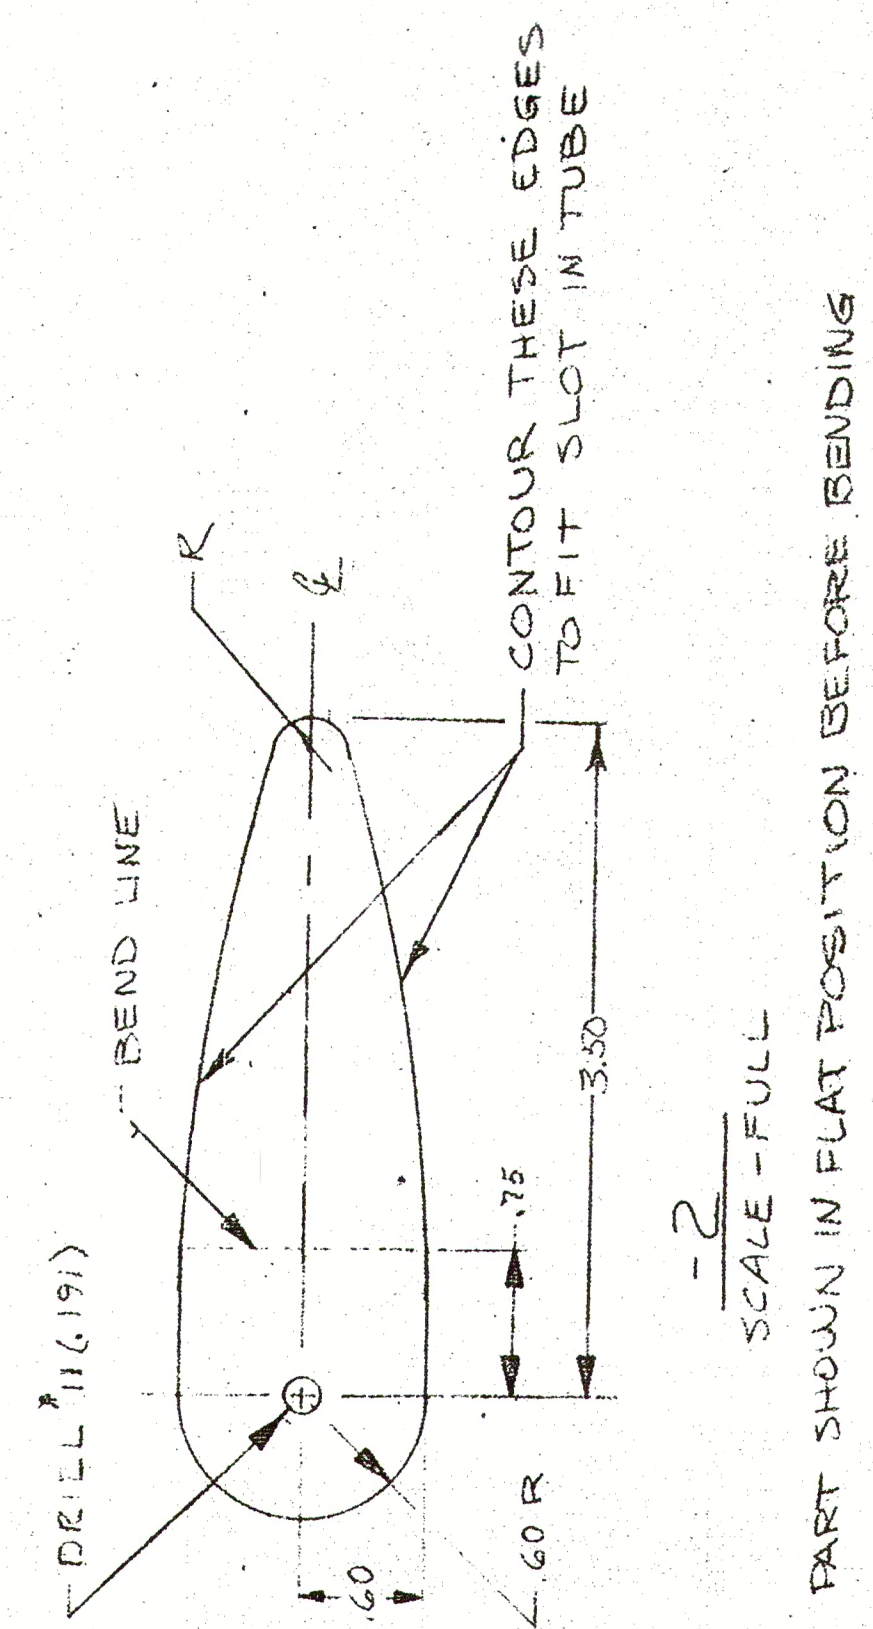 DRILL #11 (.191)
BEND LINE
R
℄
CONTOUR THESE EDGES
TO FIT SLOT IN TUBE
.60
.60 R
.75
3.50
-2
SCALE - FULL
PART SHOWN IN FLAT POSITION BEFORE BENDING